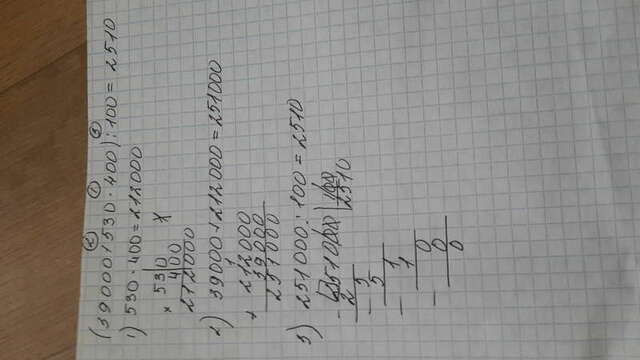 ② ① ③
(39000+530·400):100=2510
1) 530·400=212000
× 530
400
212000
2) 39000+212000=251000
1
+ 212000
39000
251000
3) 251000:100=2510
- 251000 | 100
2 2510
- 5
5
- 1
1
- 0
0
0